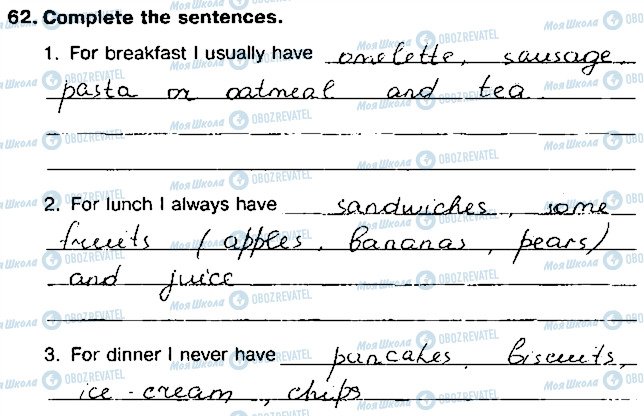 62. Complete the sentences.
1. For breakfast I usually have omelette, sausage
pasta or oatmeal and tea
2. For lunch I always have sandwiches, some
fruits (apples, bananas, pears)
and juice
3. For dinner I never have pancakes, biscuits,
ice-cream, chips